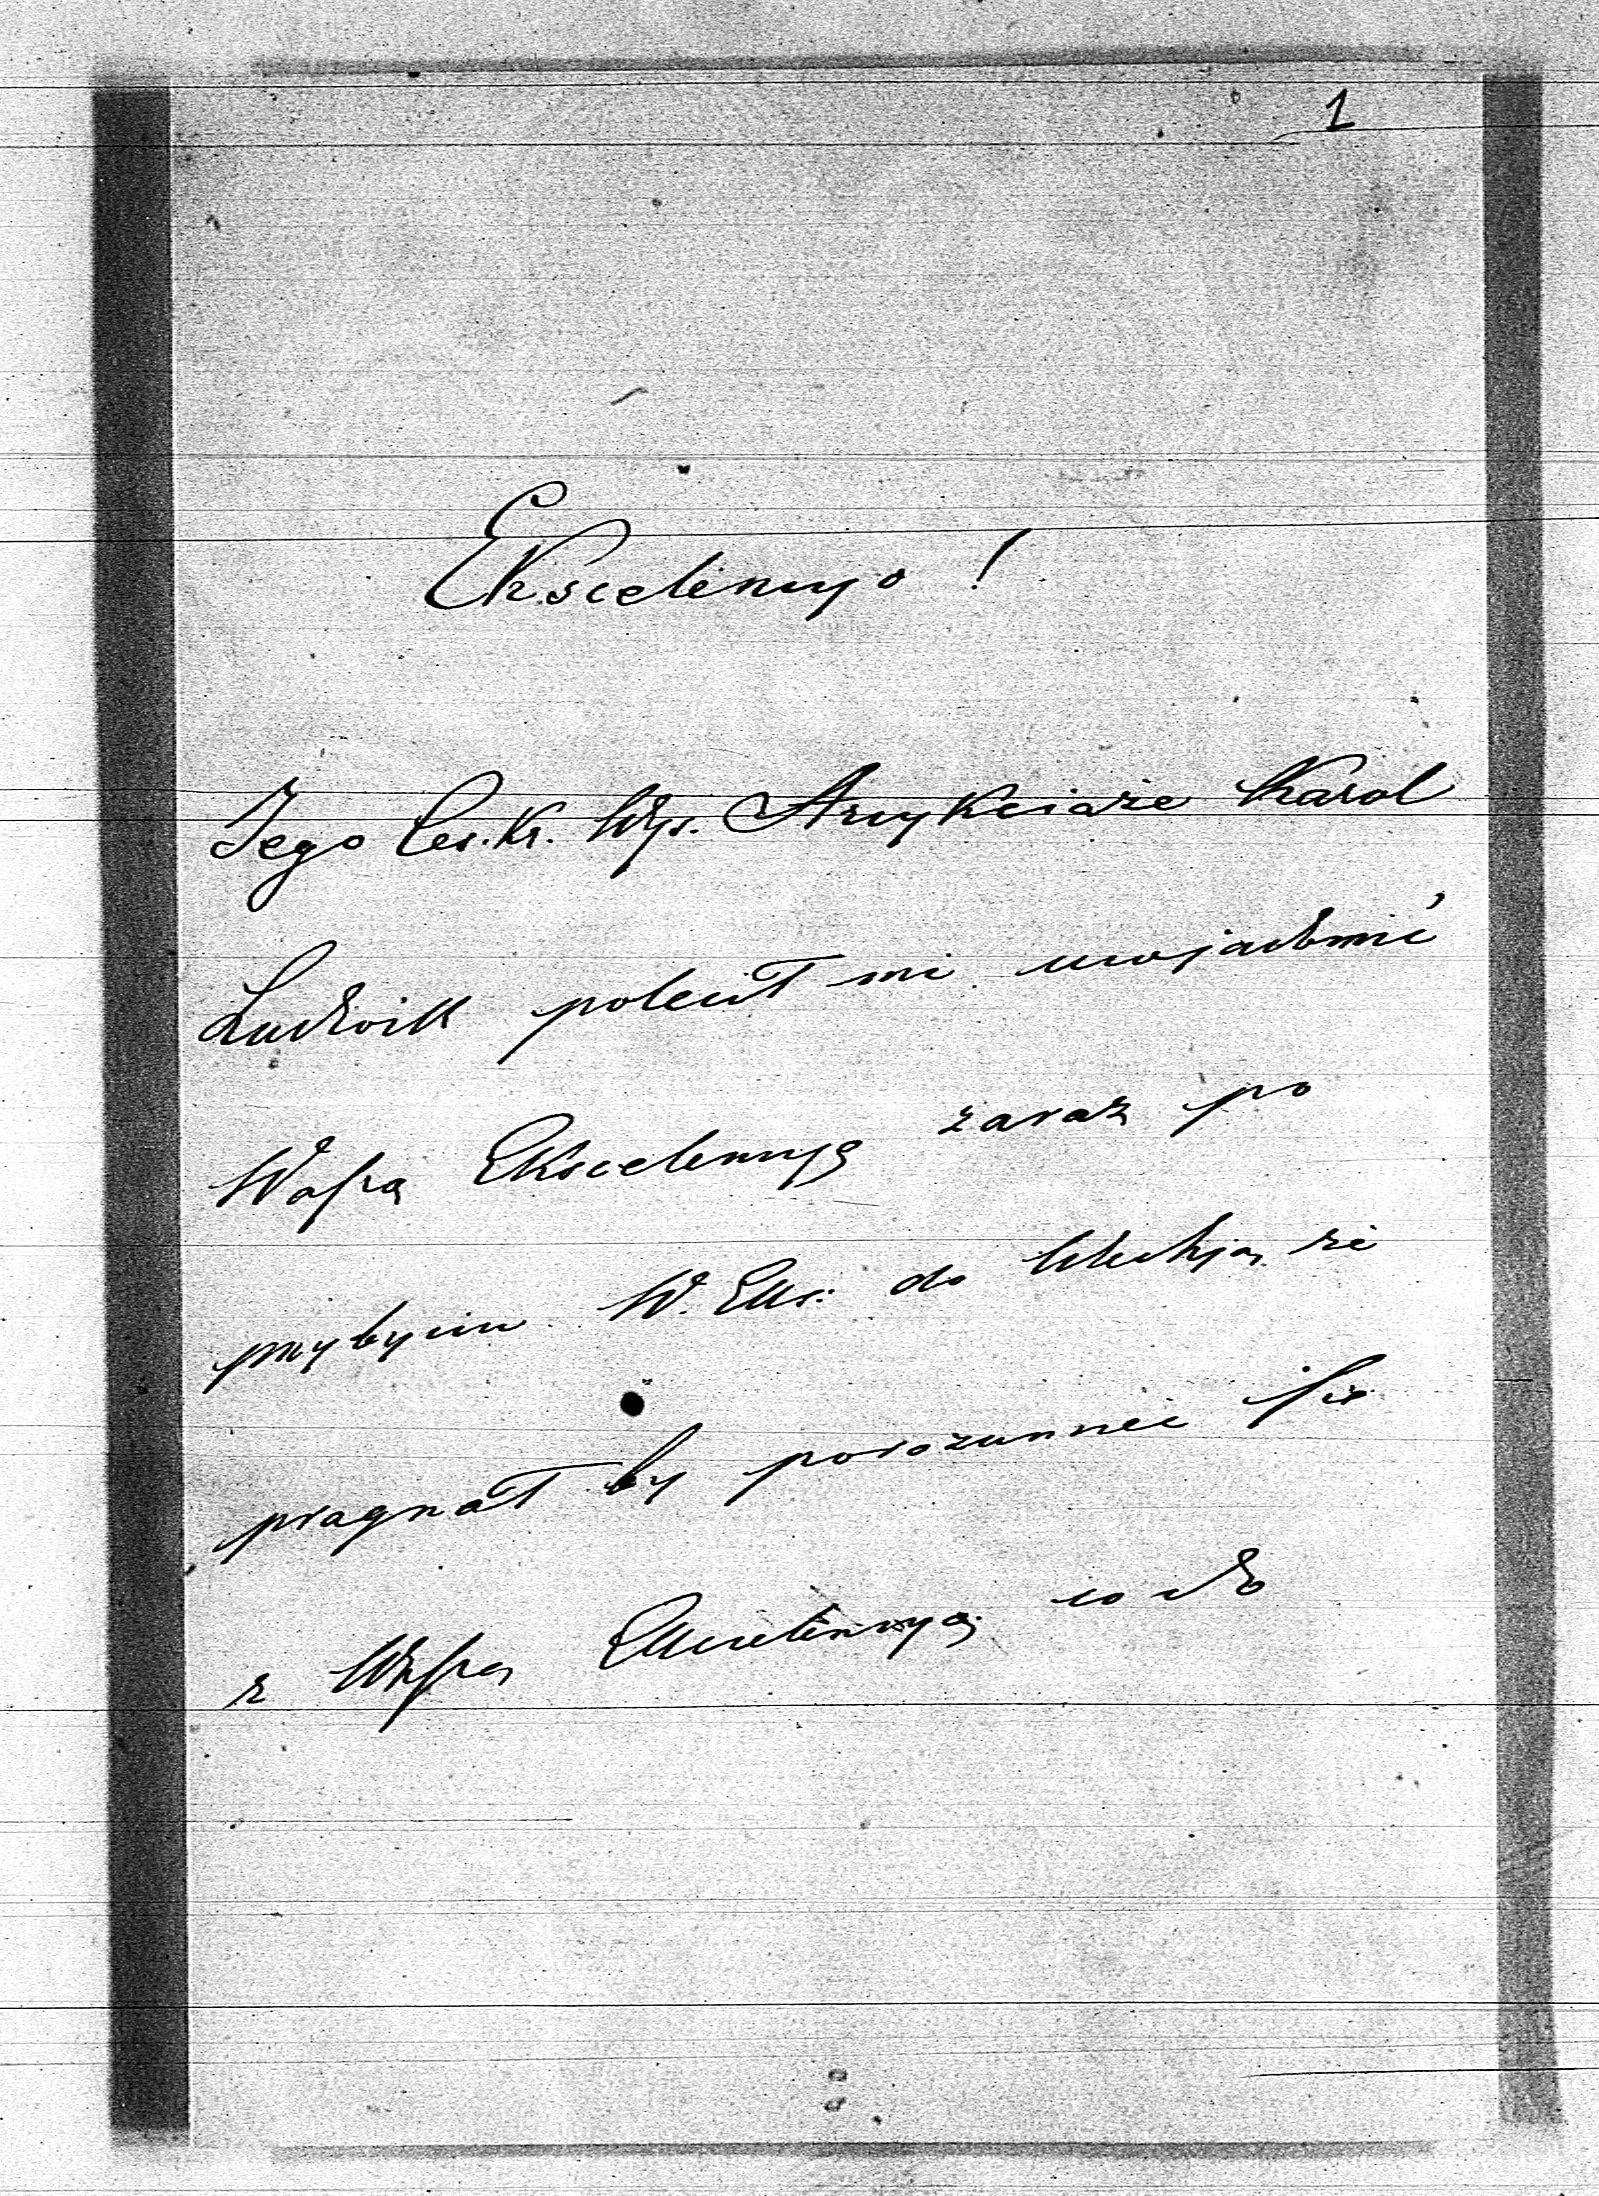 1
Ekscelencyo!
Jego Ces. Kr. Wys. Arcyksiąże Karol
Ludwik polecił mi uwiadomić
Waszą Ekscelencyę zaraz po
przybyciu W. Eks. do że
pragnął by porozumieć się
z Waszą Ekscelencyą co do